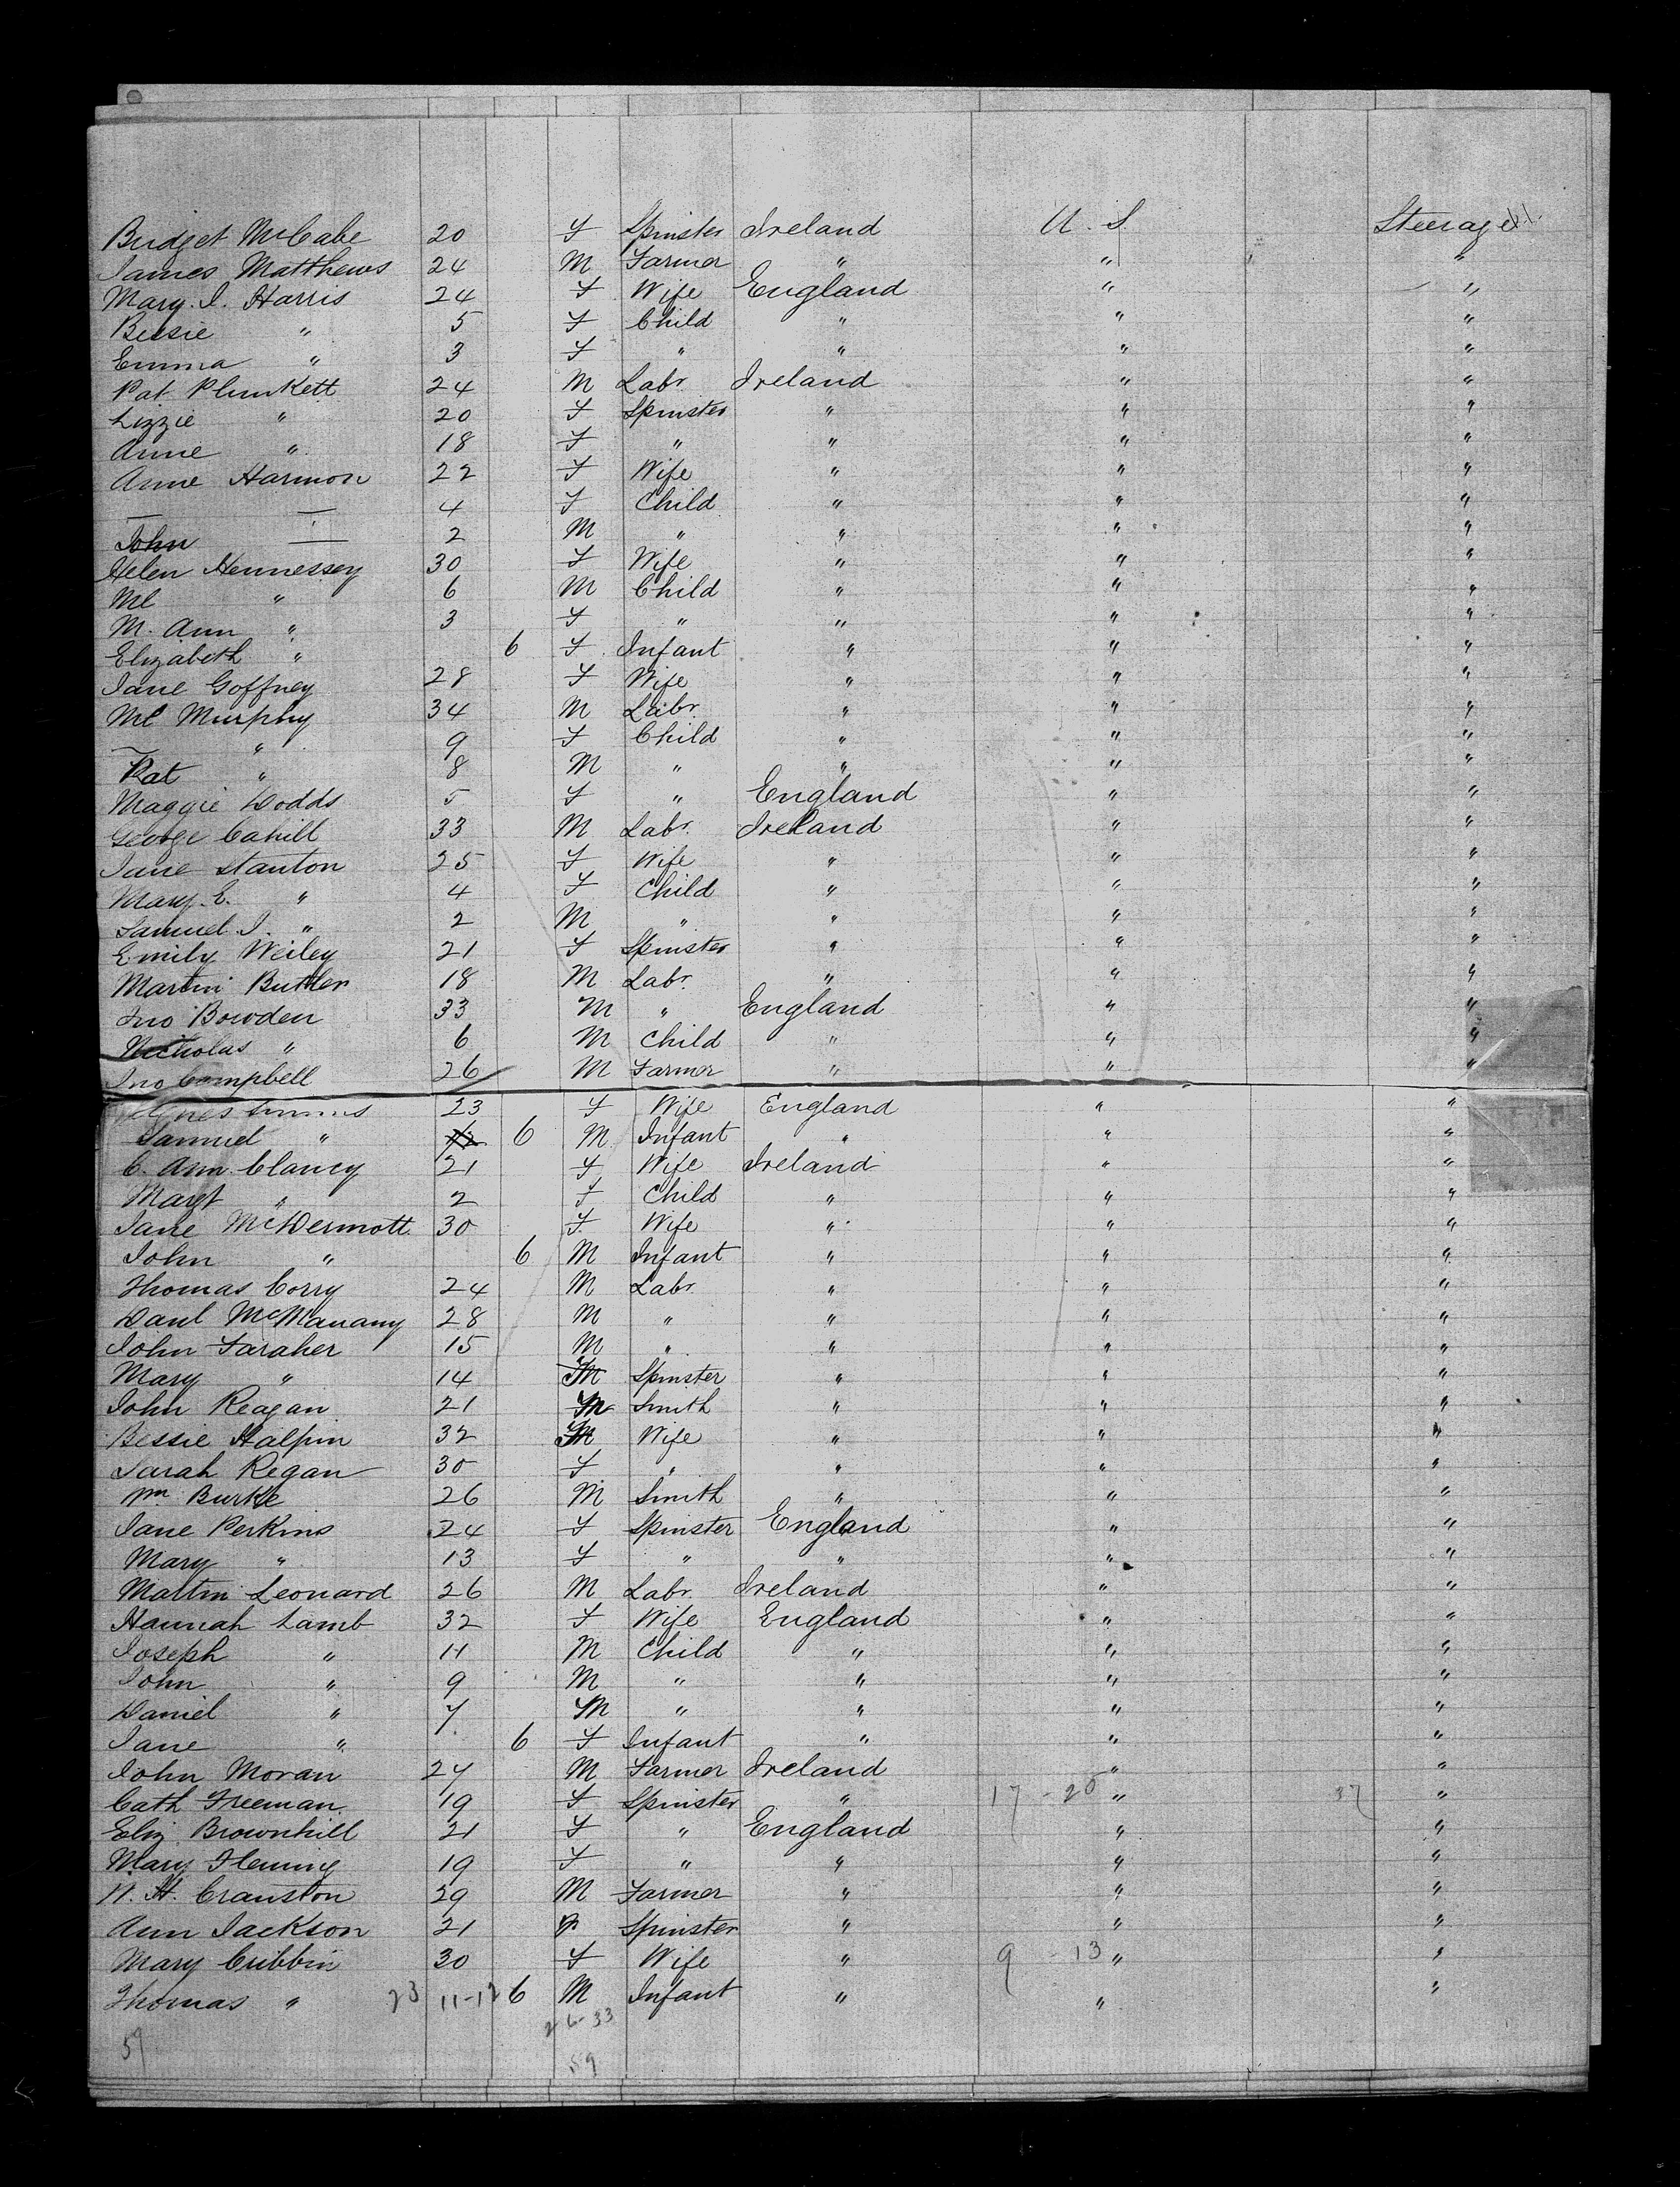 Bridget McCabe 20 F Spinster Ireland U.S. Steerage
James Matthews 24 M Farmer " " "
Mary. I. Harris 24 F Wife England " "
Bessie " 5 F Child " " "
Emma " 3 F " " " "
Pat Plunkett 24 M Labr Ireland " "
Lizzie " 20 F Spinster " " "
Anne " 18 F " " " "
Anne Harmon 22 F Wife " " "
— — 4 F Child " " "
John — 2 M " " " "
Helen Hennessey 30 F Wife " " "
Ml " 6 M Child " " "
M. Ann " 3 F " " " "
Elizabeth " 6 F Infant " " "
Jane Goffney 28 F Wife " " "
Ml Murphy 34 M Labr " " "
— " 9 F Child " " "
Pat " 8 M " " " "
Maggie Dodds 5 F " England " "
George Cahill 33 M Labr. Ireland " "
Jane Stanton 25 F Wife " " "
Mary. E. " 4 F Child " " "
Samuel J. " 2 M " " " "
Emily Weiley 21 F Spinster " " "
Martin Butler 18 M Labr. " " "
Jno Bowden 33 M " England " "
Nicholas " 6 M Child " " "
Jno Campbell 26 M Farmer " " "
Agnes 23 F Wife England " "
Samuel " 6 M Infant " " "
C. Ann Clancy 21 F Wife Ireland " "
Margt " 2 F Child " " "
Jane McDermott 30 F. Wife " " "
John " 6 M Infant " " "
Thomas Corry 24 M Labr " " "
Danl McManamy 28 M " " " "
John Faraher 15 M " " " "
Mary " 14 F Spinster " " "
John Reagan 21 M Smith " " "
Bessie Halpin 32 F Wife " " "
Sarah Regan 30 F " " " "
Wm Burke 26 M Smith " " "
Jane Perkins 24 F Spinster England " "
Mary " 13 F " " " "
Martin Leonard 26 M Labr. Ireland " "
Hannah Lamb 32 F Wife England " "
Joseph " 11 M Child " " "
John " 9 M " " " "
Daniel " 7 M " " " "
Jane " 6 F Infant " " "
John Moran 27 M Farmer Ireland " "
Cath Freeman 19 F Spinster " 17 - 20 " 37 "
Eliz Brownhill 21 F " England " "
Mary Fleming 19 F " " " "
N. H. Cranston 29 M Farmer " " "
Ann Jackson 21 F Spinster " " "
Mary Cribbin 30 F Wife " 9 - 13 " "
Thomas " 23 11-12 6 M Infant " " "
26-33
59 59